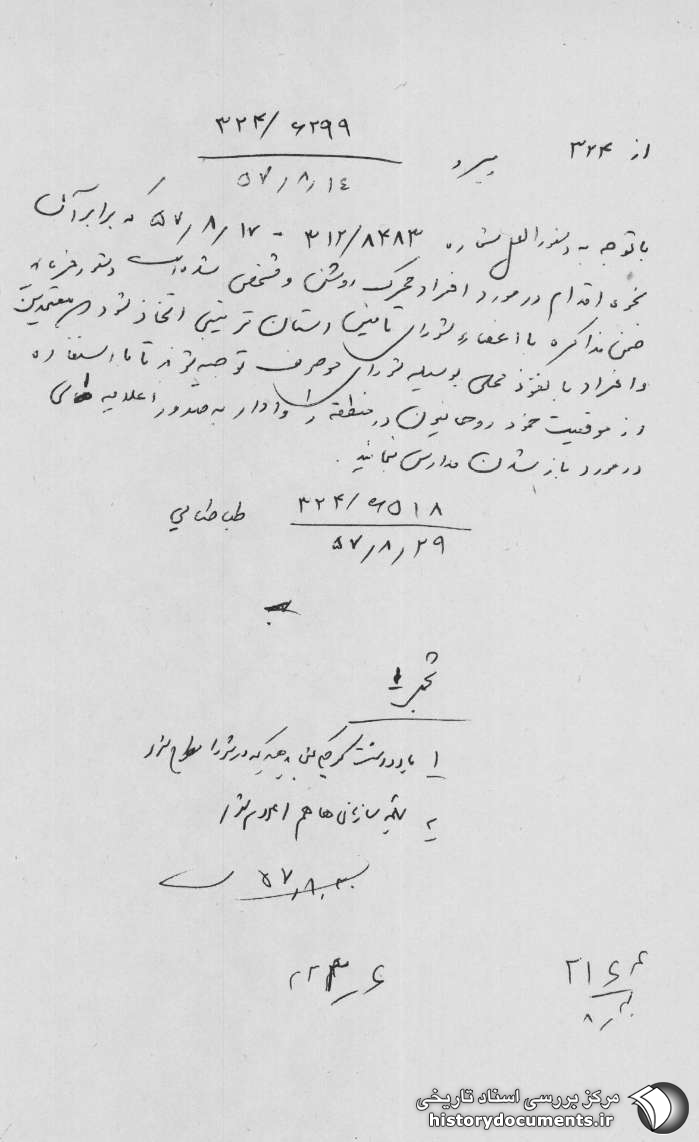 از ۳۲۴ پیرو ۳۲۴/۶۲۹۹
۵۷/۸/۱۴
با توجه به دستورالعمل شماره ۳۱۲/۸۴۸۳ - ۵۷/۸/۱۷ که برابر آن
نحوه اقدام در مورد افراد محرک روشن و مشخص شده است دستور فرمایید
ضمن مذاکره با اعضاء شورای تامین استان ترتیبی اتخاذ شود معتمدین
و افراد با نفوذ محلی بوسیله شورای موصوف توجیه شوند تا با استفاده
از موقعیت خود روحانیون در منطقه را وادار به صدور اعلامیه هایی
در مورد باز شدن مدارس نمایند.
۳۲۴/۶۵۱۸ طباطبایی
۵۷/۸/۲۹
۱
۲ بقیه سازمان ها هم اعلام شود
۵۷/۸/۳۰
مرکز بررسی اسناد تاریخی
historydocuments.ir